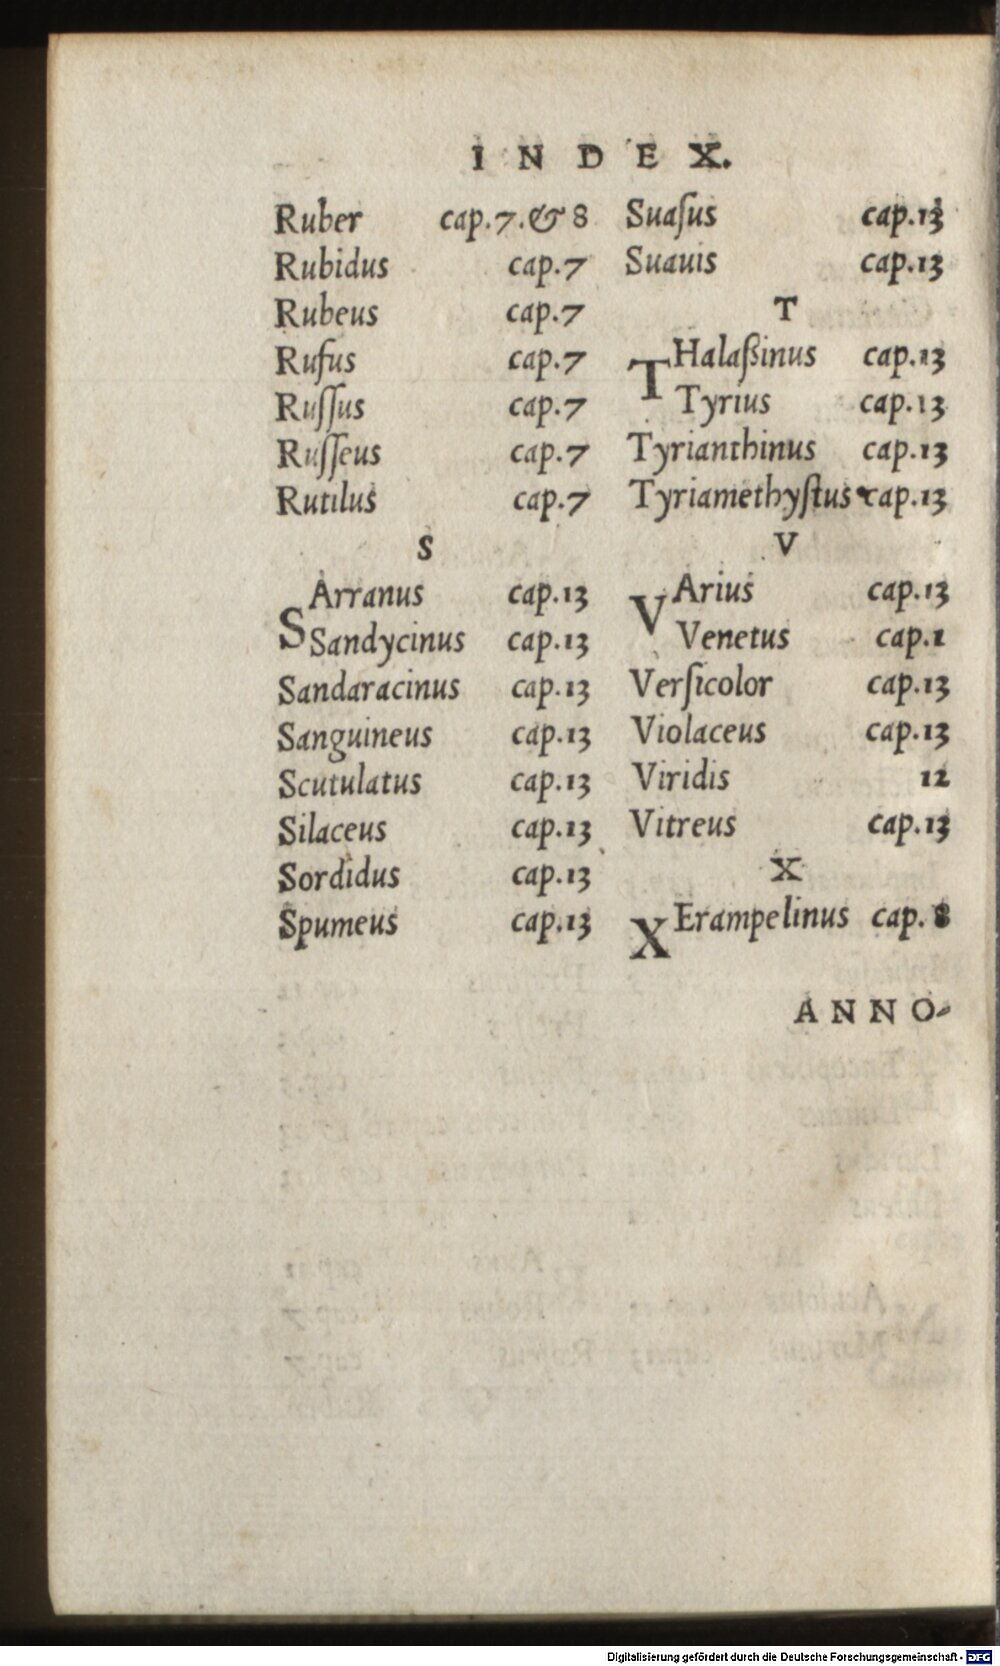 INDEX.
Ruber cap.7.& 8
Rubidus cap.7
Rubeus cap.7
Rufus cap.7
Ruſſus cap.7
Ruſſeus cap.7
Rutilus cap.7
S
SArranus cap.13
Sandycinus cap.13
Sandaracinus cap.13
Sanguineus cap.13
Scutulatus cap.13
Silaceus cap.13
Sordidus cap.13
Spumeus cap.13
Suaſus cap.13
Suauis cap.13
T
THalaßinus cap.13
Tyrius cap.13
Tyrianthinus cap.13
Tyriamethyſtus cap.13
V
VArius cap.13
Venetus cap.1
Verſicolor cap.13
Violaceus cap.13
Viridis 12
Vitreus cap.13
X
XErampelinus cap. 8
ANNO-
Digitalisierung gefördert durch die Deutsche Forschungsgemeinschaft - DFG